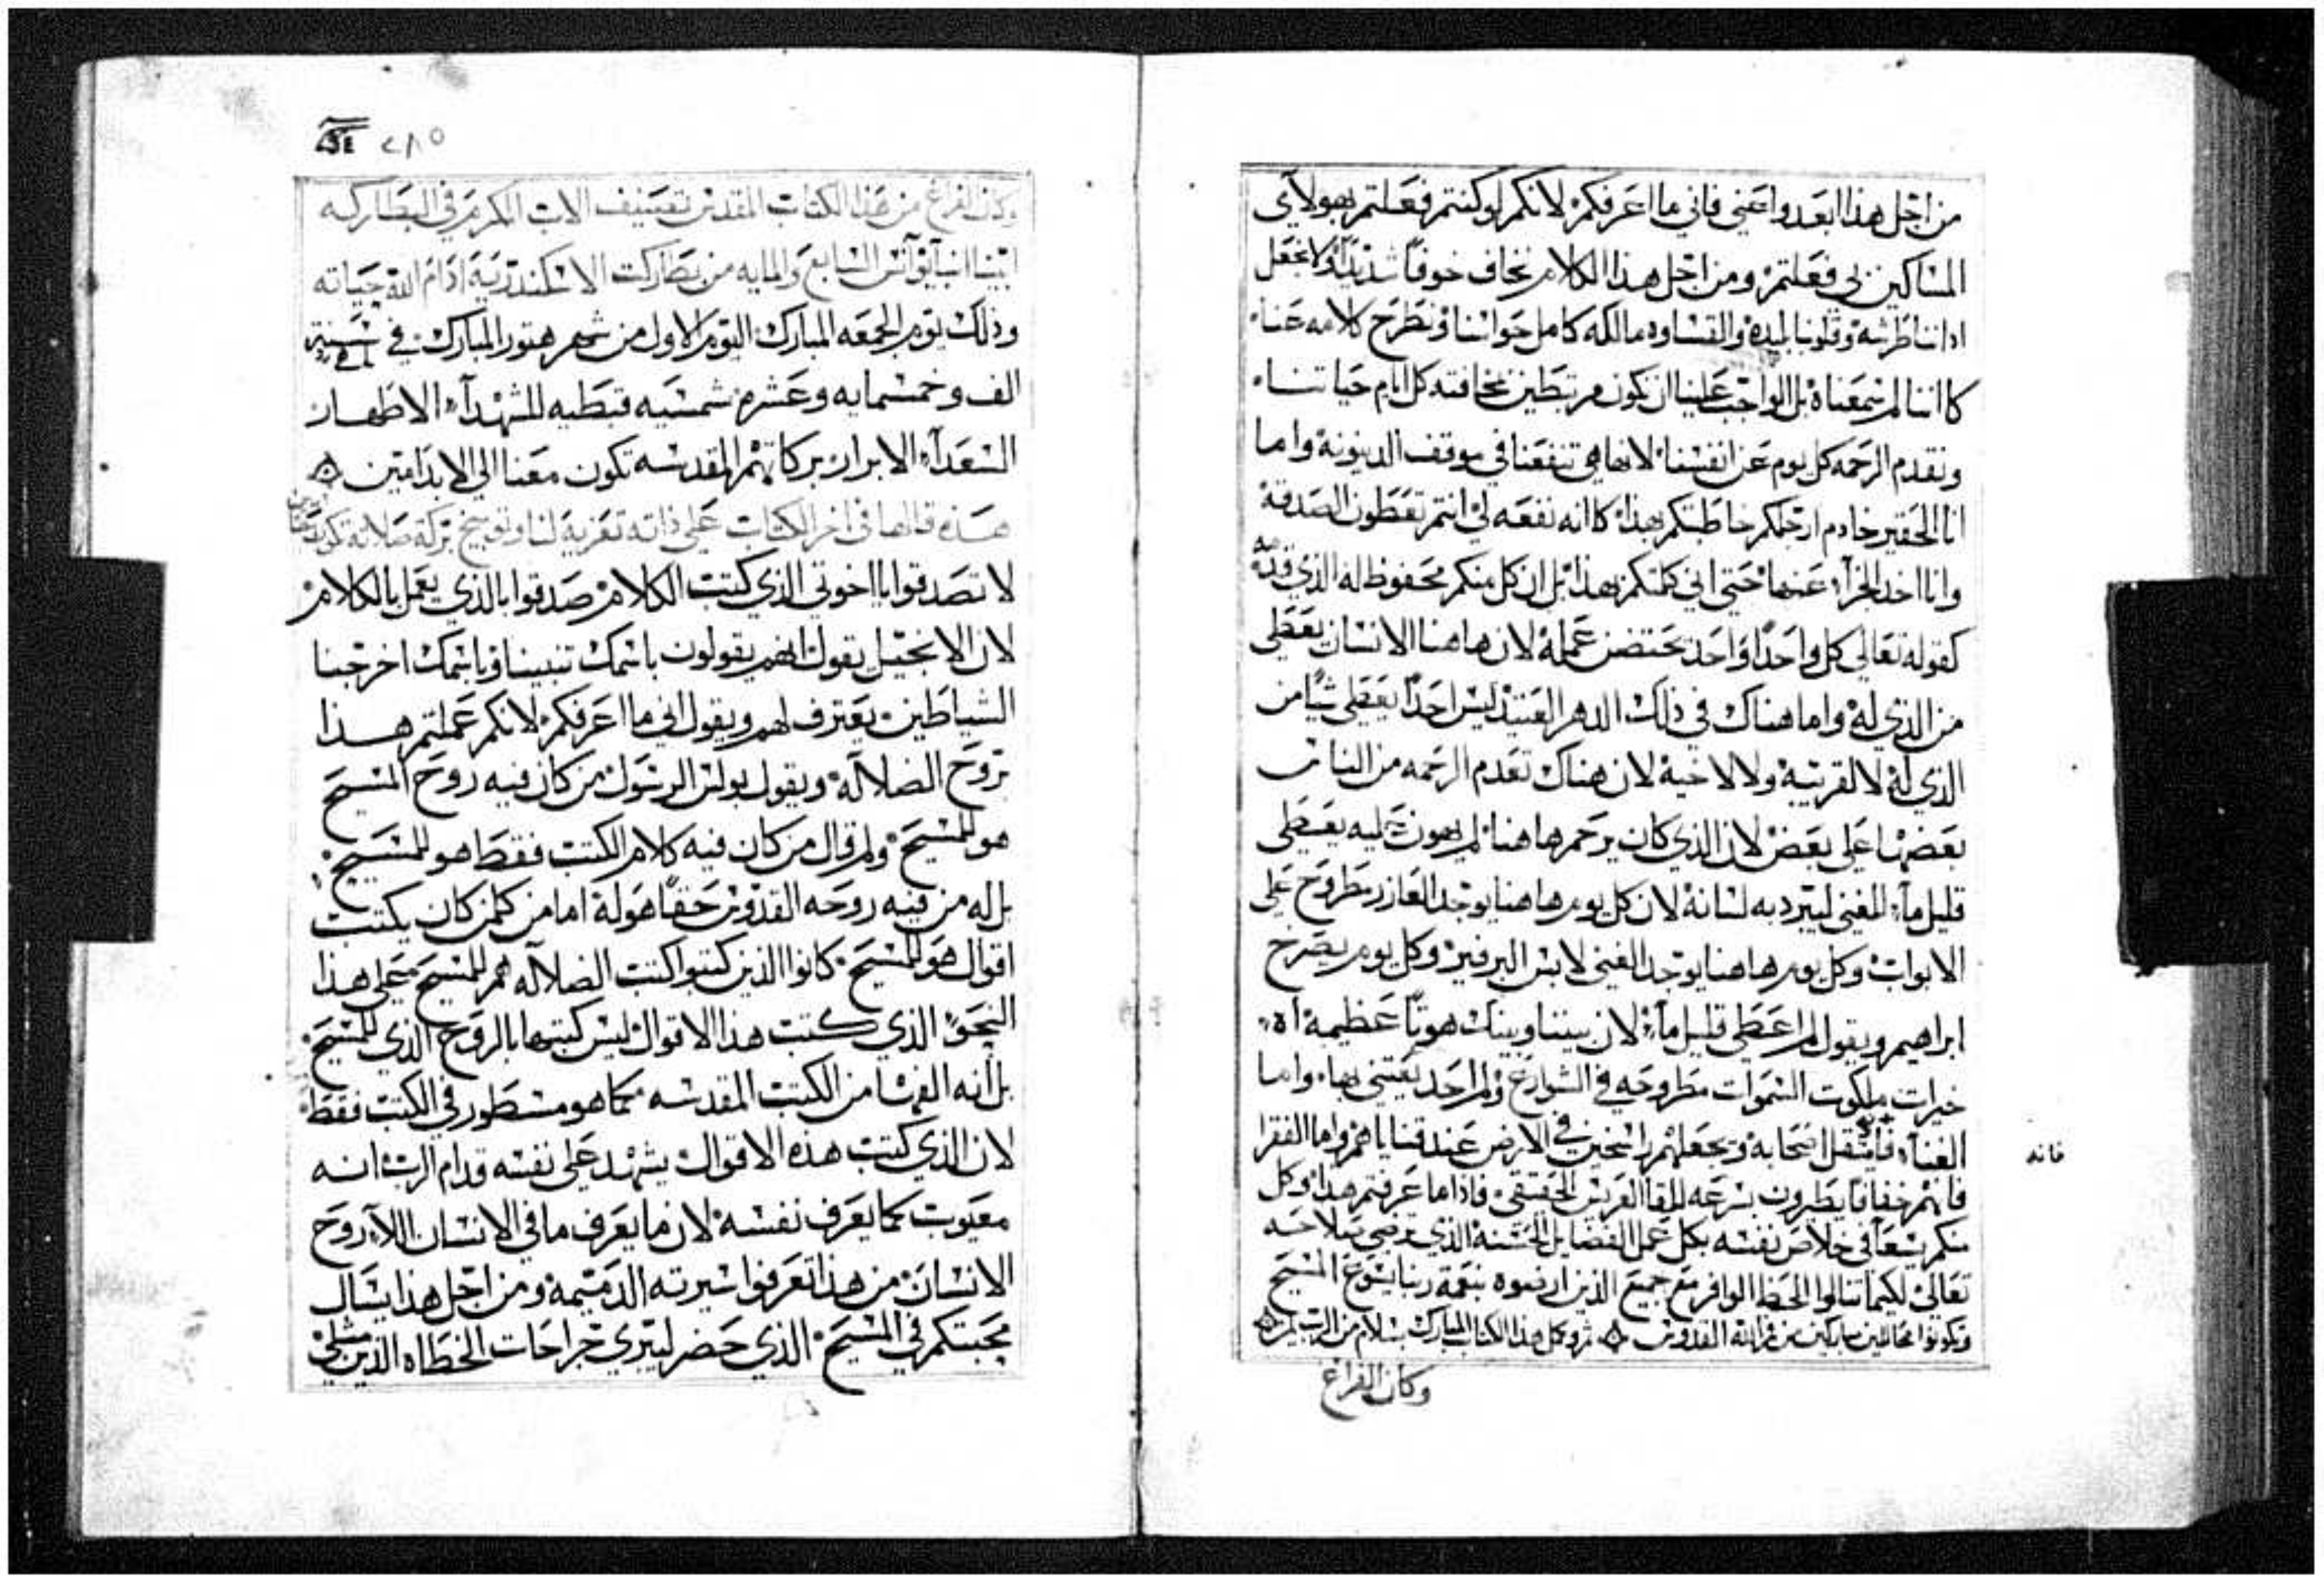 من اجل هذا ابعدوا عني فاني ما اعرفكم لانكم لو كنتم فعلتم بهولاي
المساكين لي فعلتم ومن اجل هذا الكلام نخاف خوفاً شديداً ولا نجعل
اداننا طرشه وقلوبنا لبده والقساوه مالكه كامل حواسنا ونطرح كلامه عنا
كاننا لم سمعناه بل الواجب علينا ان نكون مرتبطين بمخافته كل ايام حياتنا
ونقدم الرحمه كل يوم عن انفسنا لانها هي تنفعنا في موقف الدينونة واما
انا الحقير خادم ارجلكم خاطبتكم بهذا كانه نفعه لي انتم تعطون الصدقة
وانا اخد الجزآء عنها حتي اني كلمتكم بهذا بل ان كل منكم محفوظ له الذي قدمه
كقوله تعالي كل واحداً واحد عمله لان هاهنا الانسان يعطي
من الذي له واما هناك في ذلك الدهر العتيد ليس احداً يعطي شياً من
الذي له لا لقريبة ولا لاخية لان هناك تعدم الرحمه من الناس
بعضها علي بعض لان الذي كان يرحم هاهنا لم يهون عليه يعطي
قليل مآء للغني ليبرد به لسانة لان كل يوم هاهنا يوجد العازر مطروح علي
الابواب وكل يوم هاهنا يوجد الغني لابس البرفير وكل يوم يصرخ
ابراهيم ويقول لم اعطي قليل مآء لان بيننا وبينك هوتاً عظيمة اه
خيرات ملكوت السموات مطروحه في الشوارع ولم احد يعتني بها واما
الغنآء فانه يثقل اصحابه ويجعلهم راسخين في الارض عند قناياهم واما الفقرا
فانهم خفافا يطيرون بسرعه للقا العريس الحقيقي فاذا ما عرفتم هدا وكل
منكم يسعآ في خلاص نفسه بكل عمل الفضايل الحسنة الذي ترضي صلاحه
تعالي لكيما تنالوا الحظ الوافر مع جميع الذين ارضوه بنعمة ربنا يسوع المسيح
وتكونوا محاللين مباركين من فم الله القدوس تم وكمل هذا الكتاب المبارك بسلام من الرب امين
فانه
وكان الفراغ
٢٨٥
وكان الفراغ من هذا الكتاب المقدس تصنيف الاب المكرم في البطاركه
ابينا انبا يوآنس السابع والمايه من بطاركت الاسكندرية ادام الله حياته
وذلك يوم الجمعه المبارك اليوم الاول من شهر هتور المبارك في سنة
الف وخمسمايه وعشره شمسيه قبطيه للشهدآء الاطهار
السعدآء الابرار بركاتهم المقدسه تكون معنا الي الابد امين
هذه قالها في اخر الكتاب علي ذاته تعزية لنا وتوبيخ بركة صلاته تكون معنا
لا تصدقوا يا اخوتي الذي كتب الكلام صدقوا بالذي يعمل بالكلام
لان الانجيل يقول انهم يقولون باسمك تنبينا وباسمك اخرجنا
الشياطين يعترف لهم ويقول اني ما اعرفكم لانكم عملتم هذا
بروح الضلالة ويقول بولس الرسول من كان فيه روح المسيح
هو للمسيح ولم قال من كان فيه كلام الكتب فقط هو للمسيح
بل له من فيه روحه القدوس حقاً هو لة اما من كلمن كان يكتب
اقوال هو للمسيح كانوا الذين كتبوا كتب الضلاله هم للمسيح علي هذا
النحو الذي كتب هذا الاقوال ليس كتبها بالروح الذي للمسيح
بل انه الفها من الكتب المقدسه كما هو مسطور في الكتب فقط
لان الذي كتب هذه الاقوال يشهد علي نفسه قدام الرب انه
معيوب كما يعرف نفسه لان ما يعرف ما في الانسان الا روح
الانسان من هذا تعرفوا سيرته الدميمة ومن اجل هذا يسال
محبتكم في المسيح الذي حضر ليبري جراحات الخطاه الذين مثلي